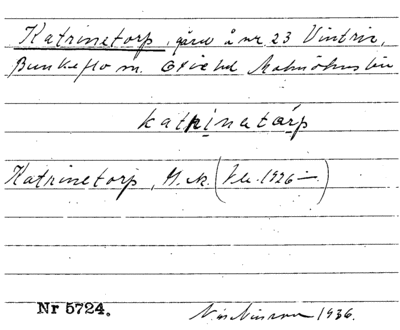 Katrinetorp, gård å nr 23 Vintrie,
Bunkeflo sn. Oxie hd Malmöhus län
katrinatǻrp
Katrinetorp, G.K. (Uu. 1926 —)
Nr 5724. 1936.